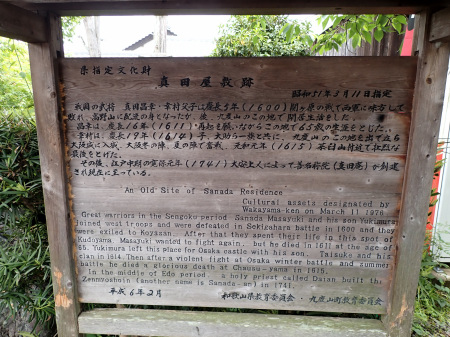 県指定文化財
真田屋敷跡
昭和51年3月11日指定
戦国の武将 真田昌幸・幸村父子は慶長5年(1600)関ヶ原の戦で西軍に味方して
敗れ、高野山に配流の身となったが、後、九度山のこの地で閑居生活をした。
昌幸は、慶長16年(1611)再起を願いながらこの地で65歳の生涯をとじた。
幸村は、慶長19年(1614)子、大助ら一族と共に、九度山のこの地を出て立ち
大阪城に入城、大阪冬の陣、夏の陣で奮戦、元和元年(1615)茶臼山附近で壮烈な
最後をとげた。
その後、江戸中期の寛保元年(1741)大安上人によって善名称院(真田庵)が創建
され現在に至っている。
An Old Site of Sanada Residence
Cultural assets designated by
Wakayama-ken on March 11 1976
Great warriors in the Sengoku period Sanada Masayuki and his son Yukimura
joined west troops and were defeated in Sekigahara battle in 1600 and they
were exiled to Koyasan. After that they spent their life in this spot of
Kudoyama. Masayuki wanted to fight again, but he died in 1611 at the age of
65. Yukimura left this place for Osaka castle with his son, Taisuke and his
clan in 1614. Then after a violent fight at Osaka winter battle and summer
battle, he died a glorious death at Chausu-yama in 1615.
In the middle of Edo period, a holy priest called Daian built the
Zenmyoshoin (another name is Sanada-an) in 1741.
平成6年2月
和歌山県教育委員会・九度山町教育委員会